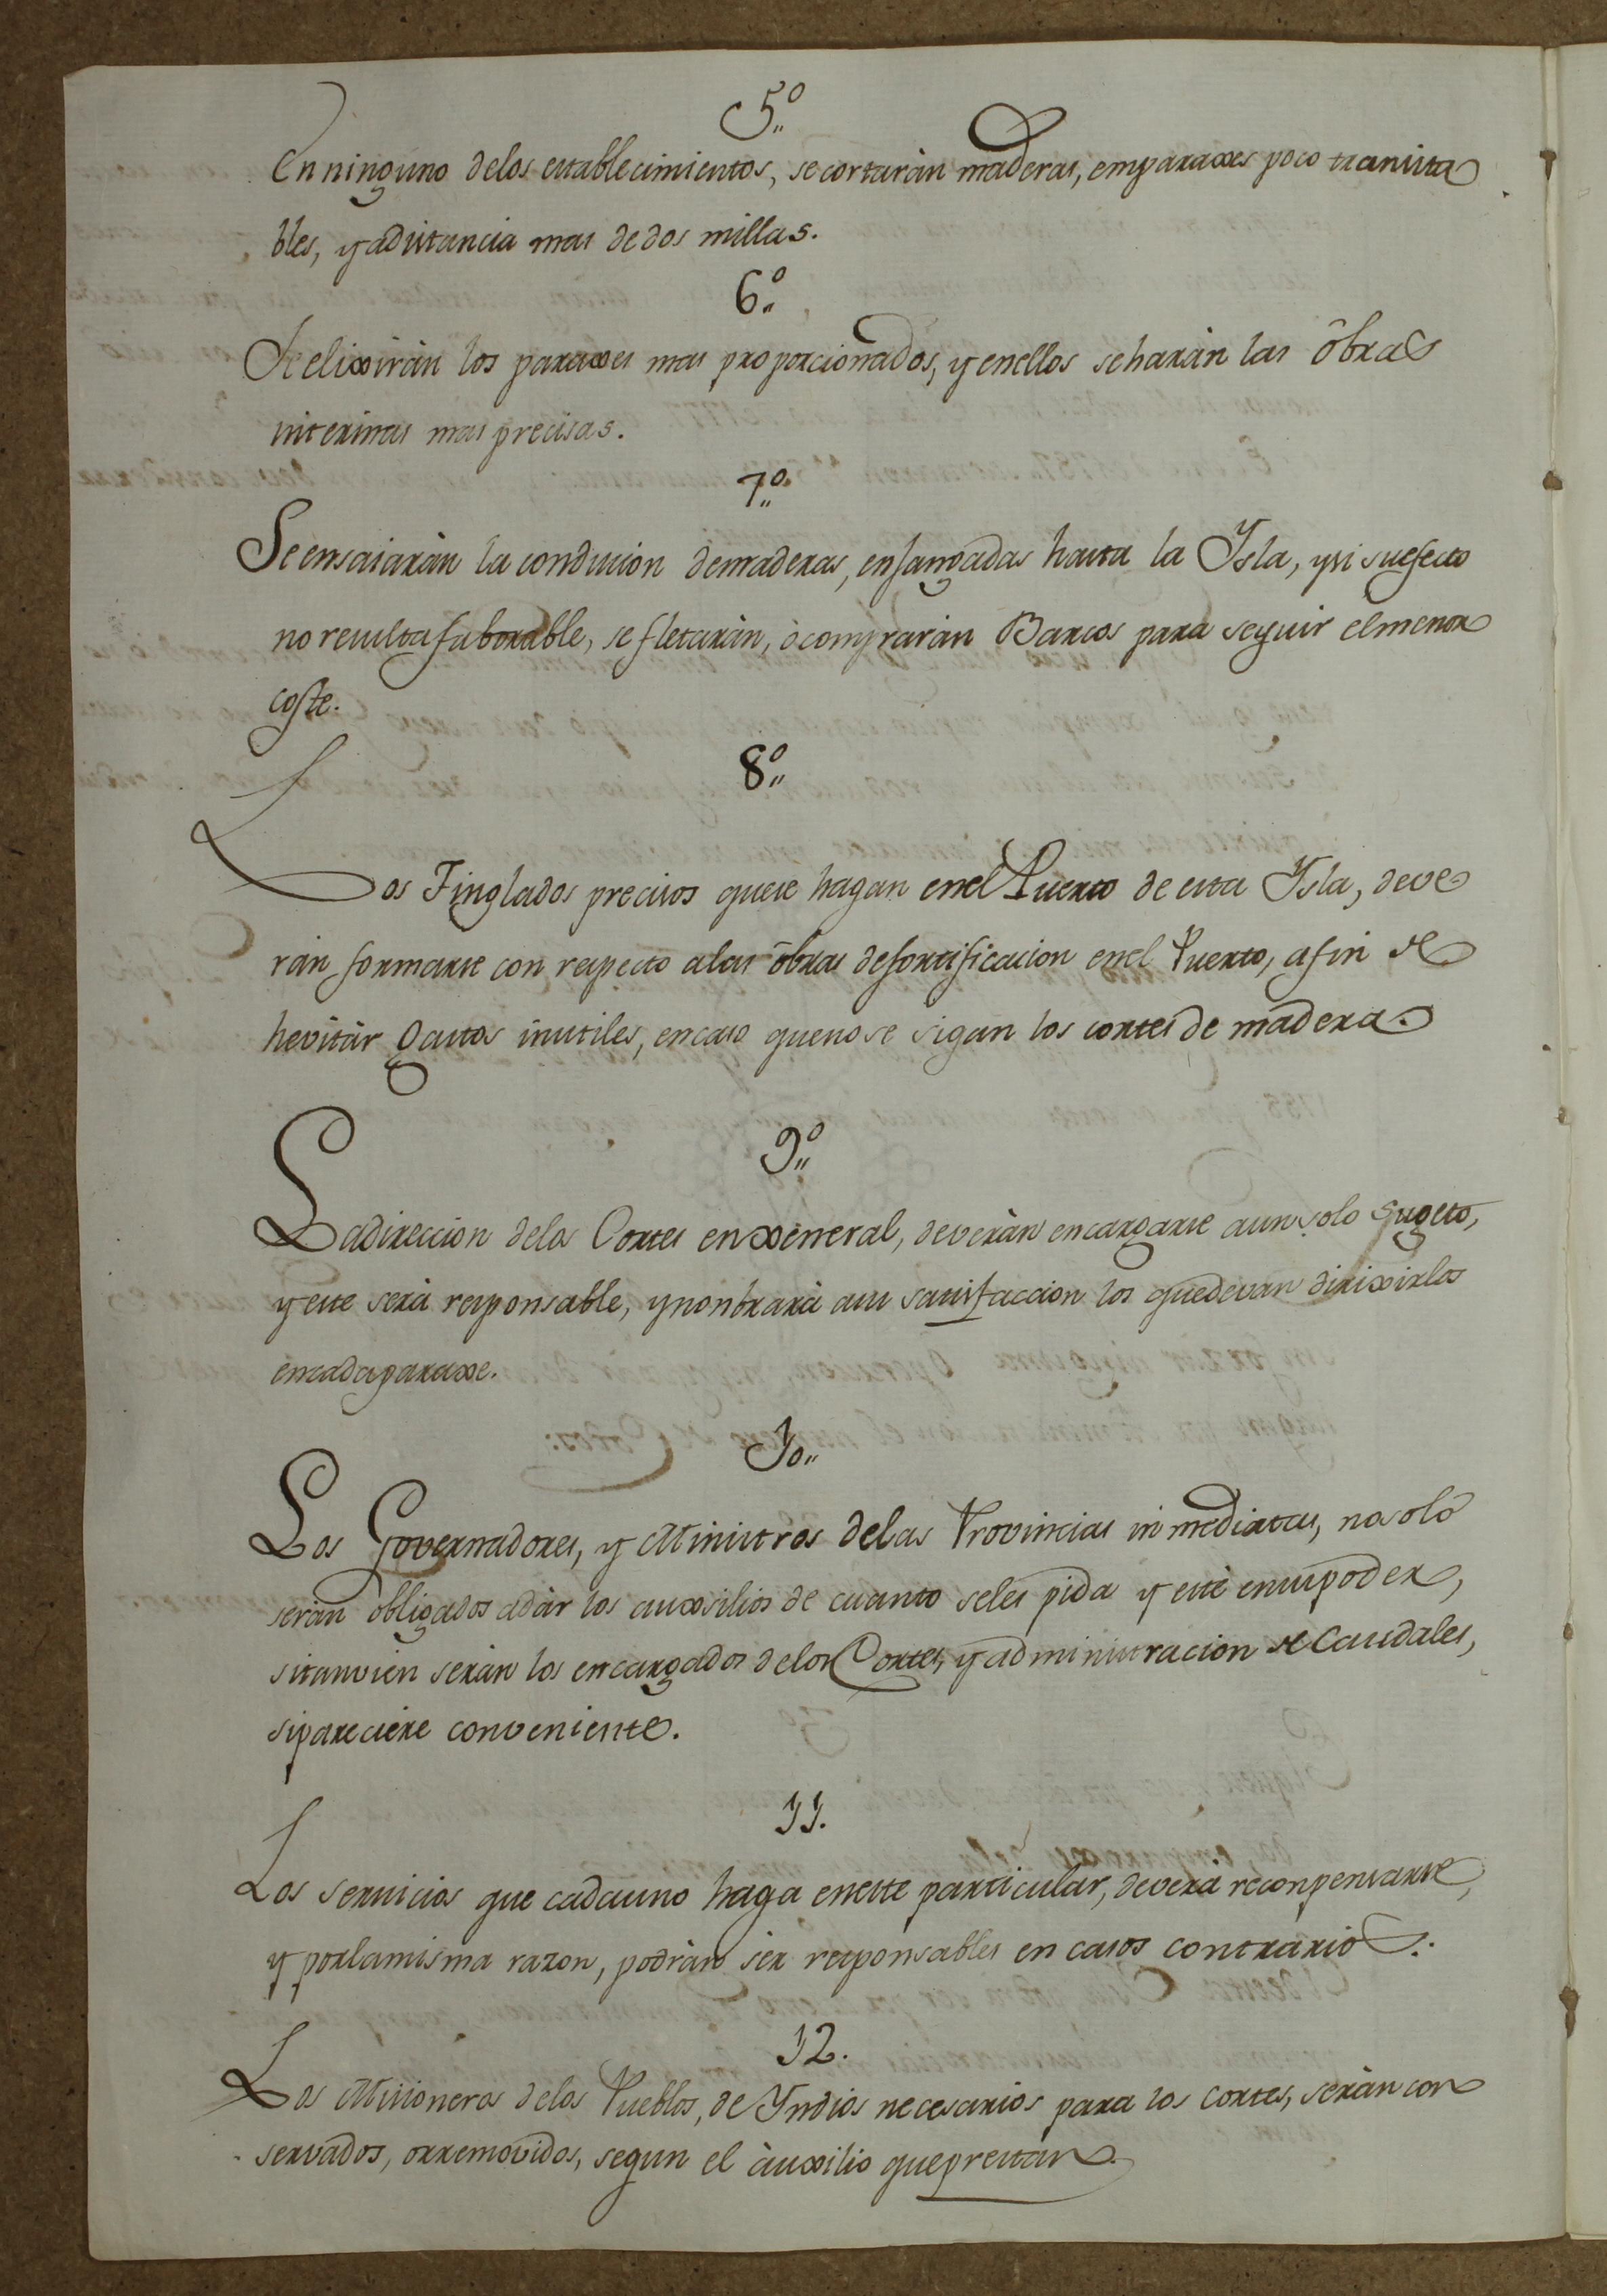 5º
En ninguno delos establecimientos, se cortarán maderas, emparaxes poco transita
bles, y adistancia mas de dos millas.
6º
Se elixirán los paraxes mas proporcionados, y enellos seharán las óbras
interinas mas precisas.
7º
Se ensaiarán la conducion demaderas, enjangadas hasta la Ysla, ysi suefecto
no resulta faborable, se fletarán, ò comprarán Barcos para seguir elmenor
coste.
8º
Los Tinglados precisos quese hagan enel Puerto de esta Ysla, deve
rán formarse con respecto alas óbras defortificacion enel Puerto, afin de
hevitár gastos inutiles, encaso quenose sigan los cortes de madera.
9º
La direccion delos Cortes en xeneral, deverán encargarse aun solo sugeto,
y este será responsable, ynonbrará asu satisfaccion los quedevan dirixirlos
encadaparaxe.
10
Los Governadores, y Ministros delas Provincias inmediatas, nosolo
serán obligados adár los auxsilios de cuanto seles pida y esté ensupoder,
sitanvien serán los encargados delos Cortes, y administracion de Caudales,
sipareciere conveniente.
11.
Los servicios que cadauno haga eneste particular, deverá reconpensarse,
y porlamisma razon, podrán sér responsables en casos contrarios.
12.
Los Misioneros delos Pueblos, de Yndios necesarios para los cortes, serán con
servados, orremovidos, segun el áuxilio queprestan.